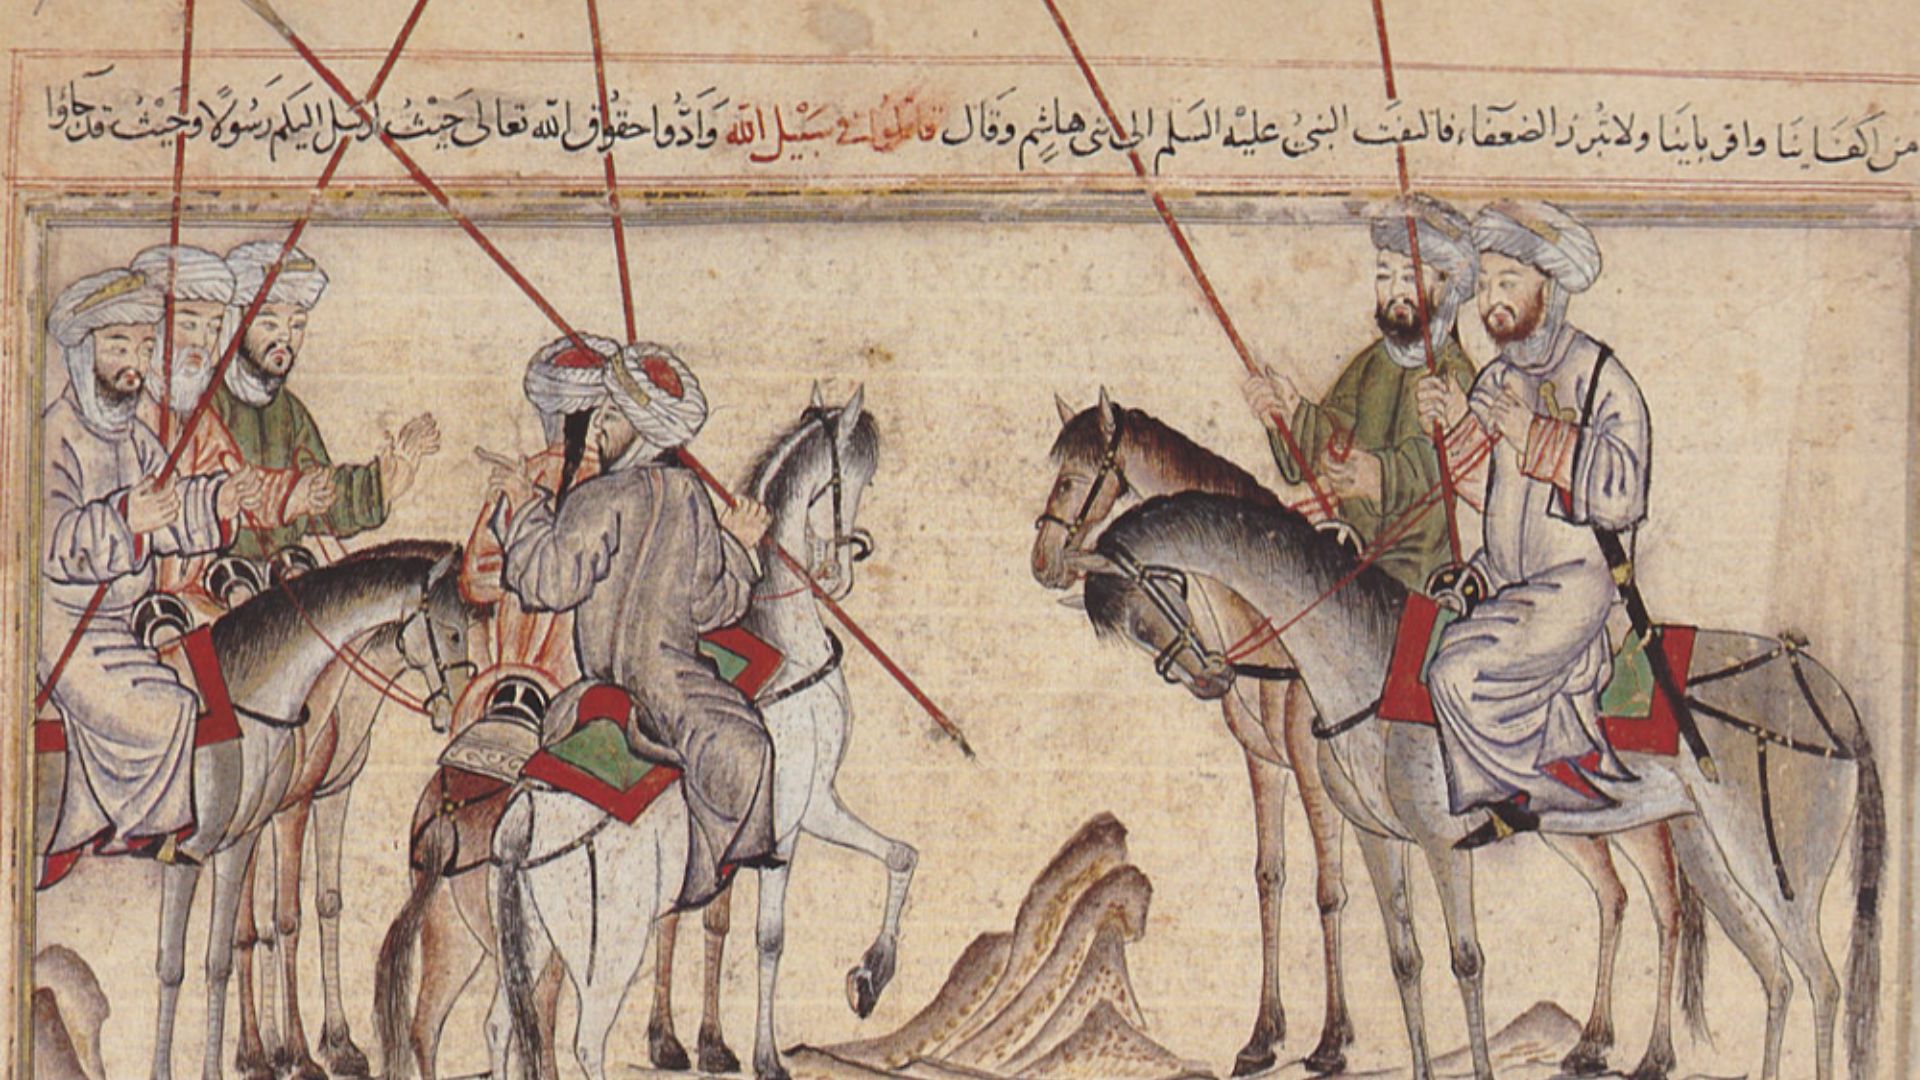 من اكفاينا واقرباينا ولا تبرز الضعفاء فالتفت النبي عليه السلم الى بني هاشم وقال قاتلوا في سبيل الله وَادُّوا حقوق الله تعالى حَيْثُ ارسل اليكم رَسُولًا وحَيْثُ قد جاؤا